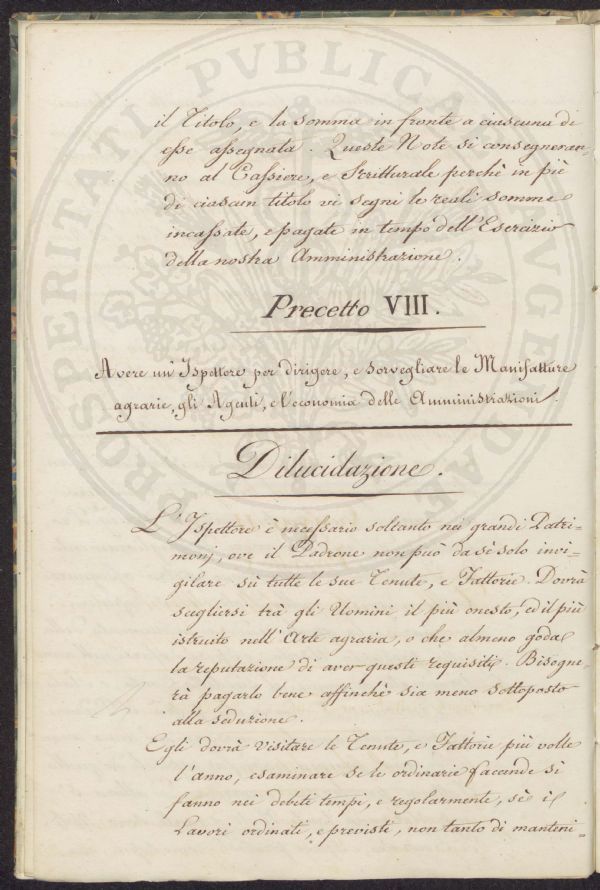 il Titolo, e la somma in fronte a ciascuna di
esse assegnata. Queste Note si consegneran-
no al Cassiere, e Scritturale perchè in piè
di ciascun titolo vi segni le reali somme
incassate, e pagate in tempo dell'Esercizio
della nostra Amministrazione.
Precetto VIII.
Avere un' Ispettore per dirigere, e sorvegliare le Manifatture
agrarie, gli Agenti, e l'economia delle Amministrazioni.
Dilucidazione.
L'Ispettore è necessario soltanto nei grandi Patri=
monj, ove il Padrone non può da sè solo invi=
gilare sù tutte le sue Tenute, e Fattorie. Dovrà
scegliersi trà gli Uomini il più onesto, ed il più
istruito nell'Arte agraria, o che almeno goda
la reputazione di aver questi requisiti. Bisogne=
rà pagarlo bene affinchè sia meno sottoposto
alla seduzione.
Egli dovrà visitare le Tenute, e Fattorie più volte
l'anno, esaminare se le ordinarie faccende si
fanno nei debiti tempi, e regolarmente, sè i
Lavori ordinati, e previsti, non tanto di manteni-
PROSPERITATI PVBLICAE AVGENDAE